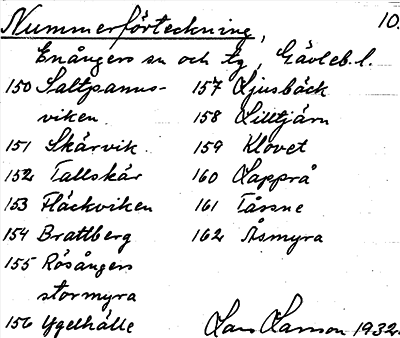 Nummerförteckning, 10.
Enångers sn och tg, Gävleb. l.
150 Saltpanns-
viken
151 Skärvik
152 Tallskär
153 Fläckviken
154 Brattberg
155 Rösångers
stormyra
156 Ygelhälle
157 Ljusbäck
158 Lilltjärn
159 Klovet
160 Lapprå
161 Tåsne
162 Åsmyra
Lars Larsson 1932.